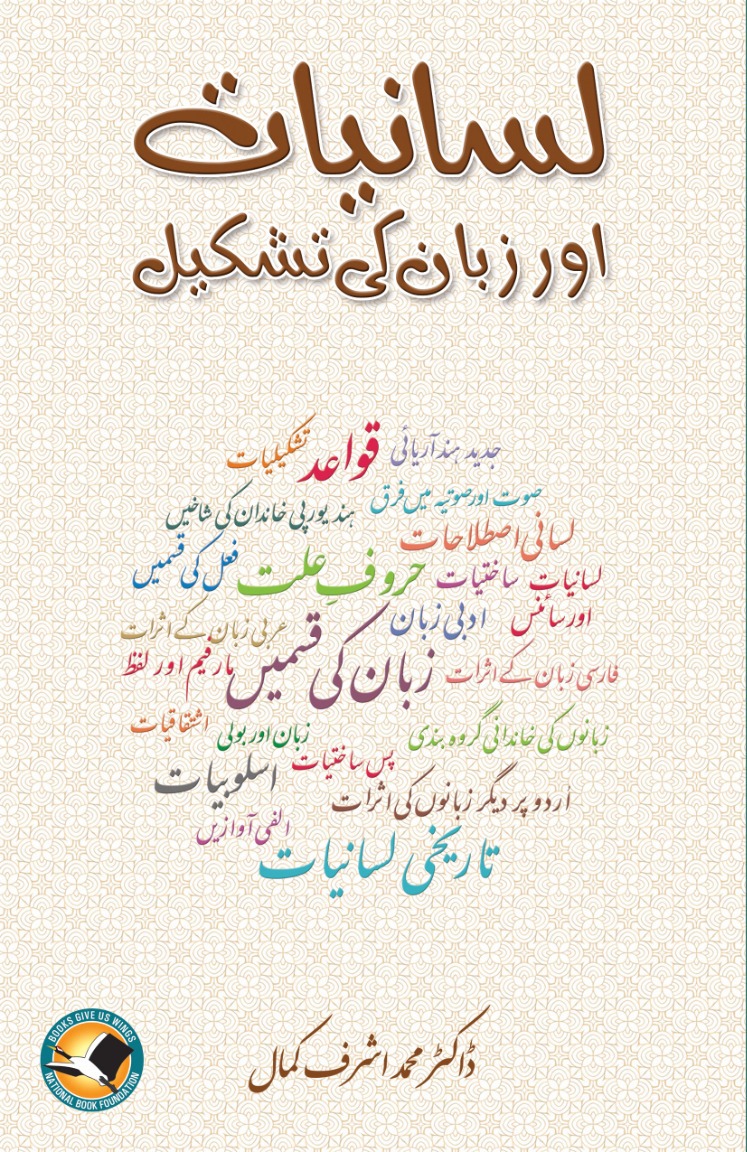 لسانیات
اور زبان کی تشکیل
جدید ہند آریائی
قواعد
تشکیلیات
صوت اور صوتیہ میں فرق
ہند یورپی خاندان کی شاخیں
لسانی اصطلاحات
لسانیات
اور سائنس
ساختیات
حروفِ علت
فعل کی قسمیں
ادبی زبان
عربی زبان کے اثرات
فارسی زبان کے اثرات
زبان کی قسمیں
مارفیم اور لفظ
زبانوں کی خاندانی گروہ بندی
زبان اور بولی
اشتقاقیات
پس ساختیات
اسلوبیات
اُردو پر دیگر زبانوں کی اثرات
الفی آوازیں
تاریخی لسانیات
ڈاکٹر محمد اشرف کمال
BOOKS GIVE US WINGS
NATIONAL BOOK FOUNDATION